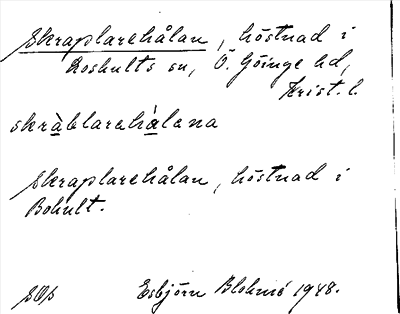 Skraplarehålan, höstnad i
Loshults sn, Ö. Göinge hd,
Krist. l.
skràblarehàlena
Skraplarehålan, höstnad i
Bohult.
Esbjörn Blohmé 1948.